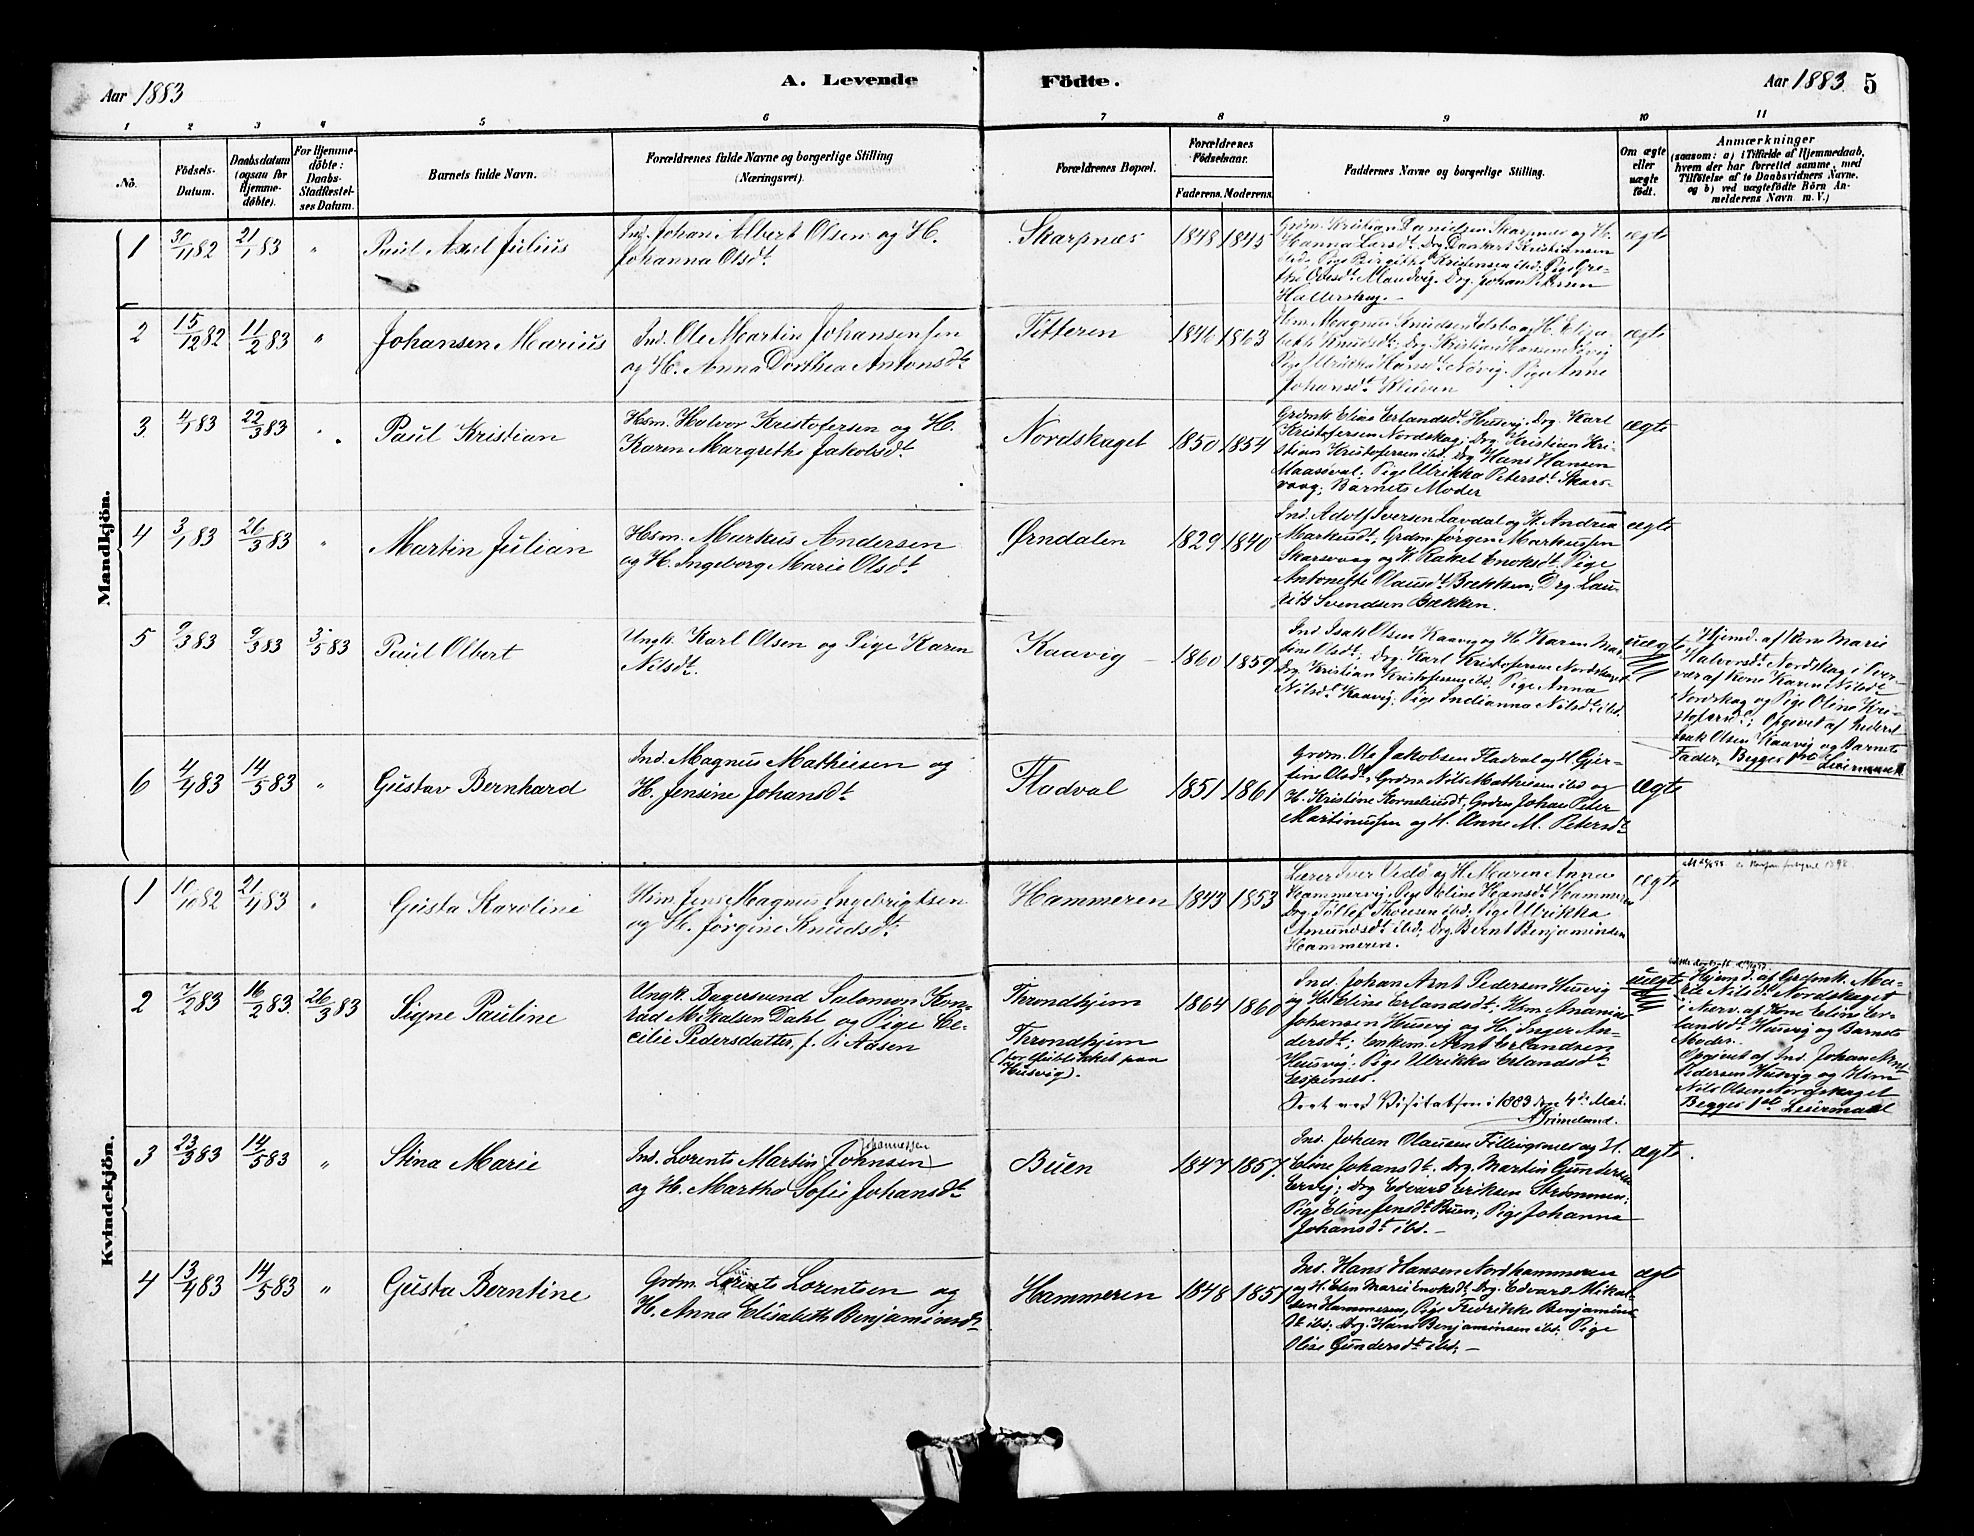 Aar 1883
A. Levende
Födte.
Aar 1883. 5
1 2 3 4 5 6 7 8 9 10 11
No.
Födsels-
Datum.
Daabsdatum
(ogsaa for
Hjemme-
döbte).
For Hjemme-
döbte:
Daabs-
Stadfæstel-
ses Datum.
Barnets fulde Navn.
Forældrenes fulde Navne og borgerlige Stilling
(Næringsvei).
Forældrenes Bopæl.
Forældrenes
Födselsaar.
Faderens. Moderens.
Faddernes Navne og borgerlige Stilling.
Om ægte
eller
uægte
födt.
Anmærkninger
(saasom: a) i Tilfælde af Hjemmedaab,
hvem der har forrettet samme, med
Tilföielse af to Daabsvidners Navne,
og b) ved uægtefödte Börn An-
melderens Navn m. V.)
Mandkjön.
1 30/11 82 21/1 83 " Paul Axel Julius
Ind. Johan Albert Olsen og H.
Johanna Olsdt.
Skarpnæs 1848 1845
Grdm. Kristian Danielsen Skarpnæs og H.
Hanna Larsdt. Drg. Dankert Kristiansen
ibid. Pige Birgitte Kristensen ibd. Pige Gre-
Drg. Johan Petersen
ægte
2 15/12 82 11/2 83 " Johansen Marius
Ind. Ole Martin Johansensen
og H. Anna Dorthea Antonsdt.
Titteren 1846 1863
Hsm. Magnus Knudsen og H. Elisa-
beth Knudsdt; Drg. Kristian Hansen
Pige Ulrikka Hansdt. Pige Anne
Johansdt.
ægte
3 4/1 83 22/3 83 " Paul Kristian
Hsm. Halvor Kristofersen og H.
Karen Margrethe Jakobsdt.
Nordskaget 1850 1854
Grdmk Eline Erlandsdt. Husvig; Drg. Karl
Kristofersen Nordskag; Drg. Kristian Kri-
stian Kristofersen ibd. Drg Hans Hansen
Maasøval; Pige Ulrikka Petersdt. Skars-
vaag; Barnets Moder
ægte
4 3/1 83 26/3 83 " Martin Julian
Hsm. Markus Andersen
og H. Ingeborg Marie Olsdt.
Ørndalen 1829 1840
Ind. Adolf Iversen Lavdal og H. Andrea
Markusdt; Grdm. Jørgen Markussen
Skarsvaag og H. Rakel Enoksdt; Pige
Antonette Olausdt. Bækken; Drg. Lau-
rits Svendsen Bækken.
ægte
5 9/3 83 9/3 83 3/5 83 Paul Olbert
Ungk. Karl Olsen og Pige Karen
Nilsdt.
Kaavig 1860 1859
Ind Isak Olsen Kaavig og H. Karen Mar-
tine Olsdt; Drg. Karl Kristofersen Nordskaget
Drg. Kristian Kristofersen ibd; Pige Anna
Nilsdt. Kaavig; Pige Indianna Nilsdt. ibd.
uægte
Hjemd. af Kone Marie
Halvorsdt. Nordskag i Over-
vær af Kone Karen Nilsdt
Nordskag og Pige Oline Kri-
stofersdt; Opgivet af Inderst
Isak Olsen Kaavig og Barnets
Fader. Begges 1ste Leiermaal
6 4/4 83 14/5 83 " Gustav Bernhard
Ind. Magnus Mathiesen og
H. Jensine Johansdt.
Fladval 1851 1861
Grdm. Ole Jakobsen Fladval og H. Gjer-
tine Olsdt; Grdm. Nils Mathiesen ibd og
H. Kristine Korneliusdt; Grdm Johan Peter
Martinussen og H. Anne M. Petersdt.
ægte
Kvindekjön.
1 10/10 82 21/1 83 " Gusta Karoline
Hsm. Jens Magnus Ingebrigtsen
og H. Jørgine Knudsdt.
Hammeren 1843 1853
Lærer Iver Vedø og H. Maren Anna
Hammervig, Pige Eline Hansdt. Hammeren
Drg. Tollef Thoresen ibd. Pige Ulrikka
Amundsdt ibd; Drg. Bernt Benjaminsen
Hammeren.
ægte
2 7/2 83 16/2 83. 26/3 83 Signe Pauline
Ungk. Bagersvend Salomon Kon-
rad Mikalsen Dahl og Pige Ce-
cilie Pedersdatter, f. i Aasen
Throndhjem
Throndhjem
(for Øieblikket paa
Husvig).
1864 1860
Ind. Johan Arnt Pedersen Husvig
og H. Eline Erlandsdt; Hsm. Ananias
Johansen Husvig og H. Inger An-
dersdt; Enkem. Arnt Erlandsen
Husvig; Pige Ulrikka Erlandsdt.
Espenes.
Seet ved Visitatsen i 1883 den 4de Mai.
Grimelund.
uægte
Hjemd. af Grdmk. Ma-
rie Nilsdt. Nordskaget
i Nærv. af Kone Eline Er-
landsdt. Husvig og Barnets
Moder.
Opgivet af Ind. Johan Arnt
Pedersen Husvig og Hsm
Nils Olsen Nordskaget
Begges 1ste Leiermaal
3 23/3 83 14/5 83 " Stina Marie
Johannessen
Ind. Lorents Martin Johnsen
og H. Martha Sofie Johansdt
Buen 1847 1857.
Ind. Johan Olausen Fillingsnes og H.
Eline Johansdt. Drg. Martin Gundersen
Ervig; Drg Edvard Eriksen Strømmen;
Pige Eline Jensdt. Buen; Pige Johanna
Johansdt. ibd. –
ægte
4 13/4 83 14/5 83 " Gusta Berntine
Grdm. Lorents Lorentsen og
H. Anna Elisabeth Benjaminsdt.
Hammeren 1848 1851
Ind. Hans Hansen Nordhammeren
og H. Elen Marie Enoksdt; Drg. Edvard Mikal-
sen Hammeren, Pige Fredrikke Benjamins-
dt ibd; Drg. Hans Benjaminsen ibd; Pige
Oline Gundersdt. ibd; –
ægte